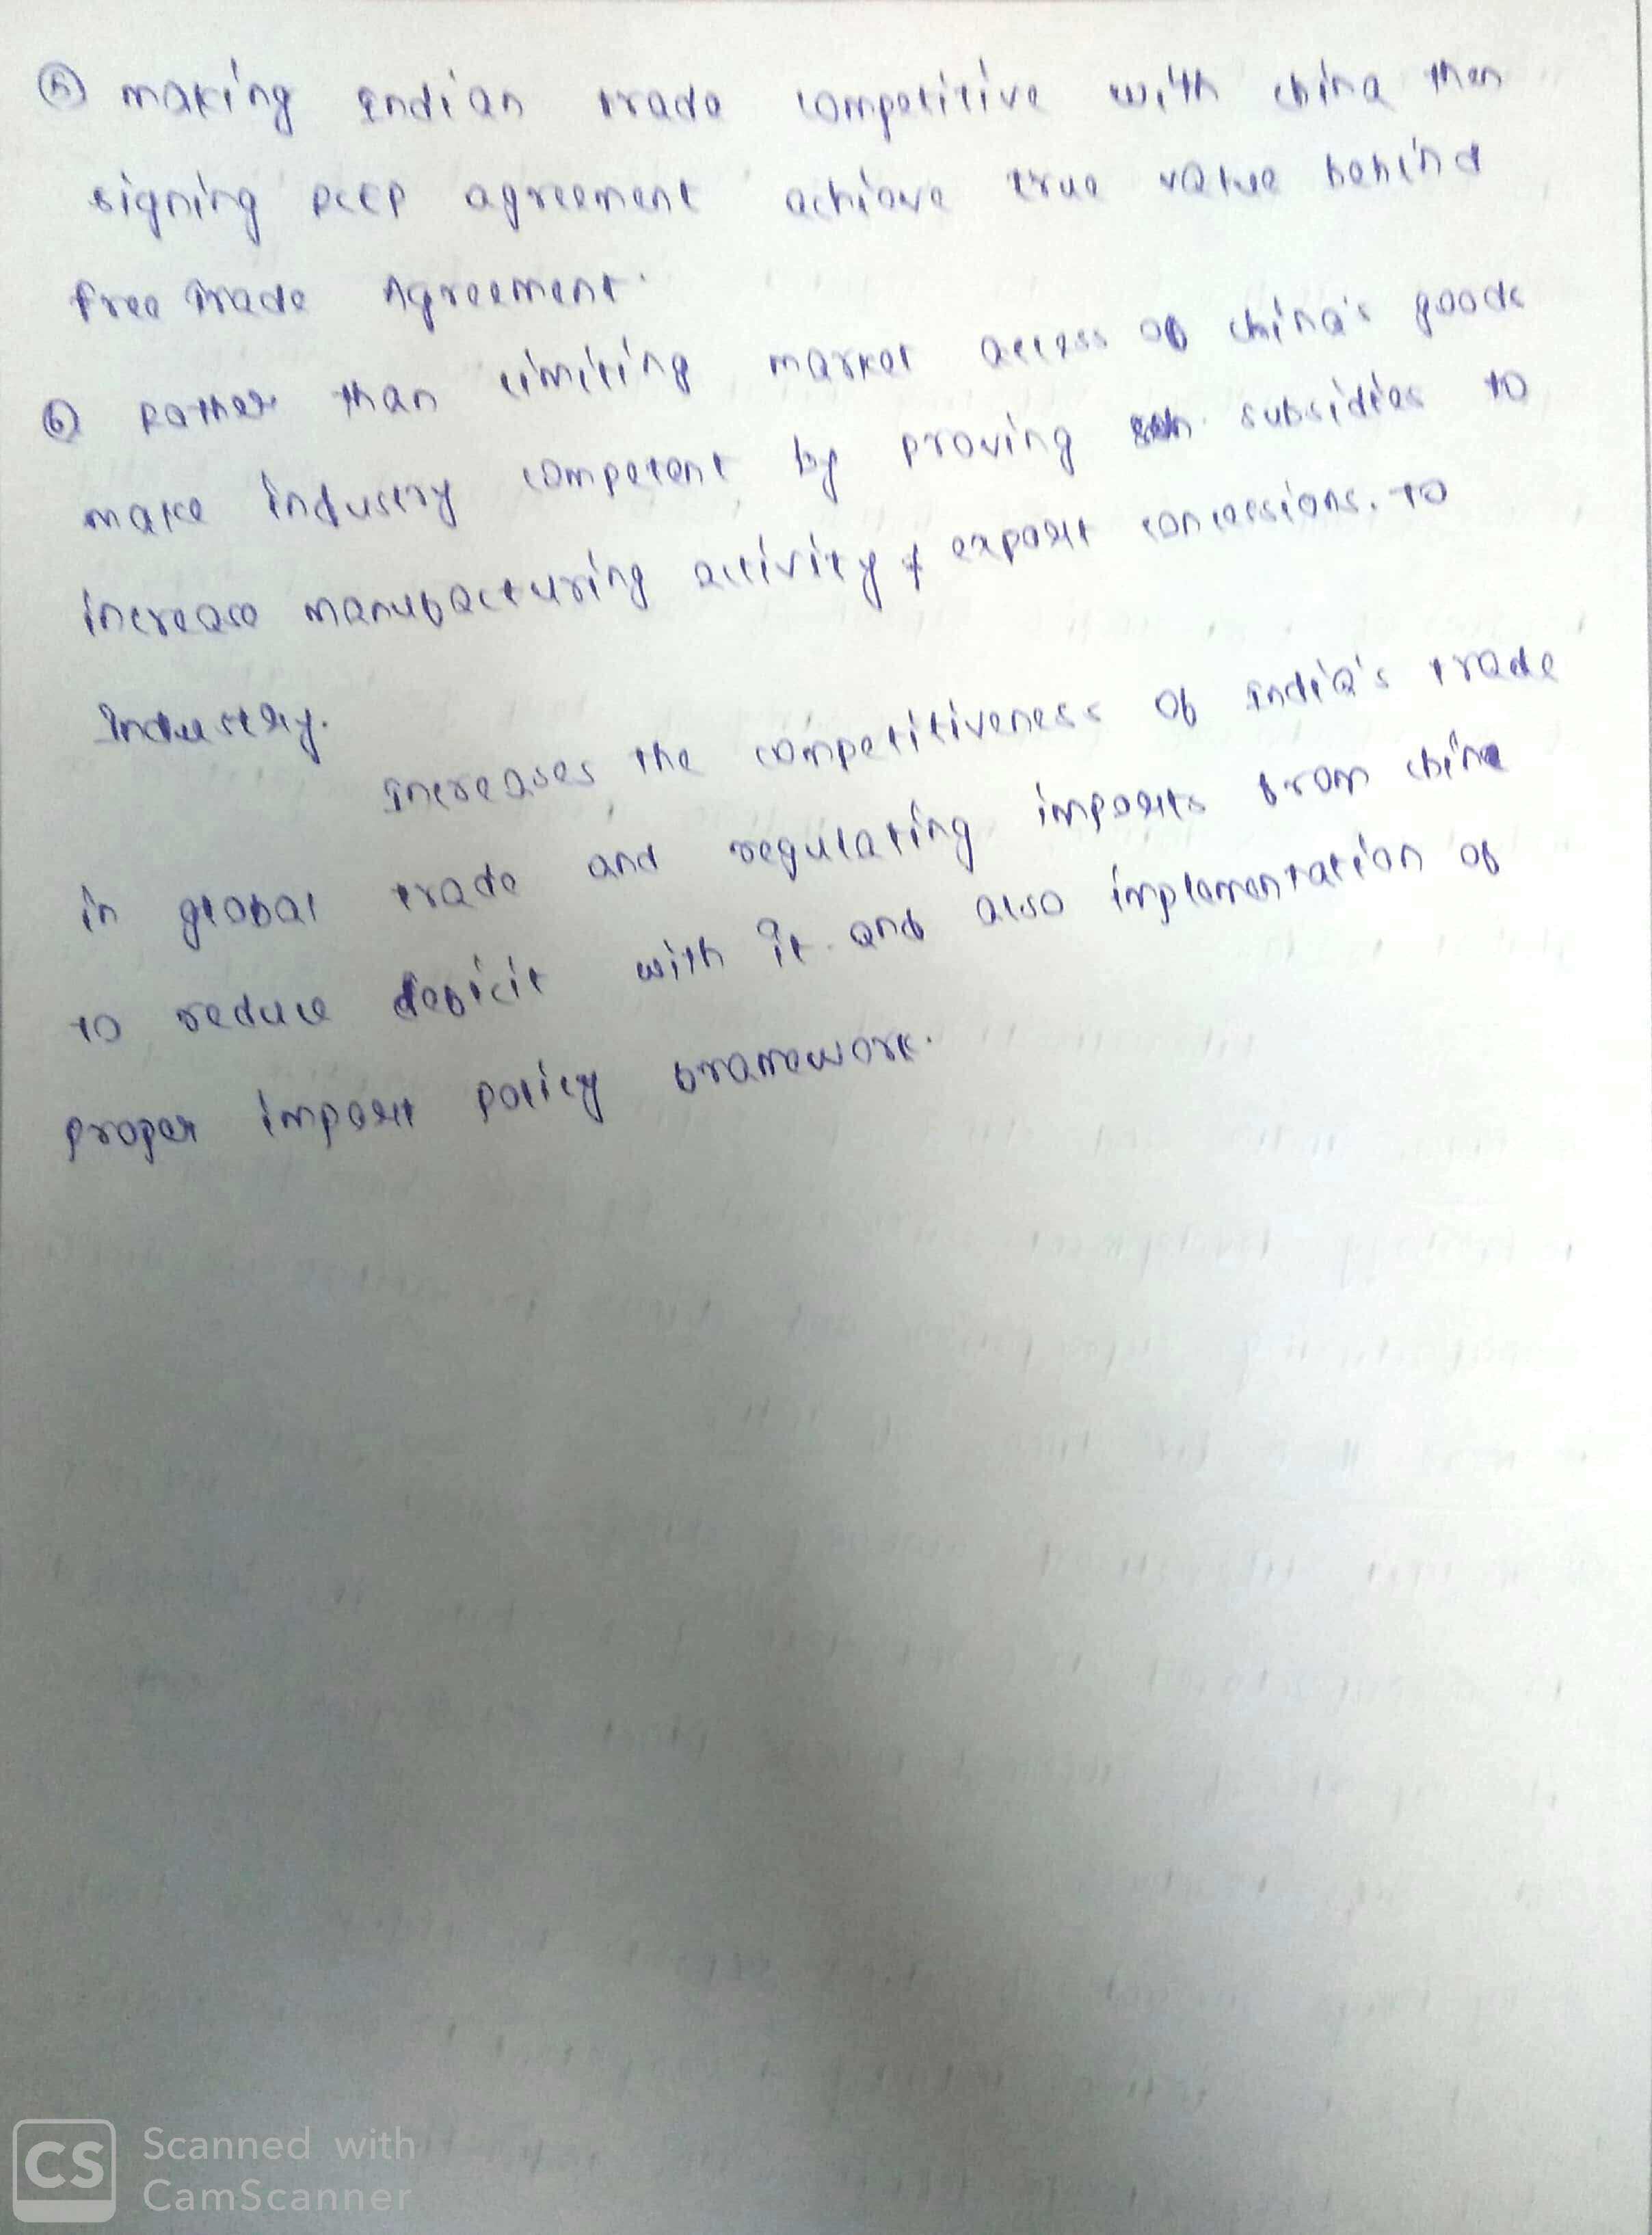 ⑤ making Indian trade competitive with china then
signing RCEP agreement achieve true value behind
free trade Agreement.
⑥ Rather than limiting market access of china's goods
make industry competent by proving subsidies to
increase manufacturing activity & export concessions. to
Industry.
Increases the competitiveness of India's trade
in global trade and regulating imports from china
to reduce deficit with it. and also implementation of
proper import policy framework.
CS Scanned with
CamScanner